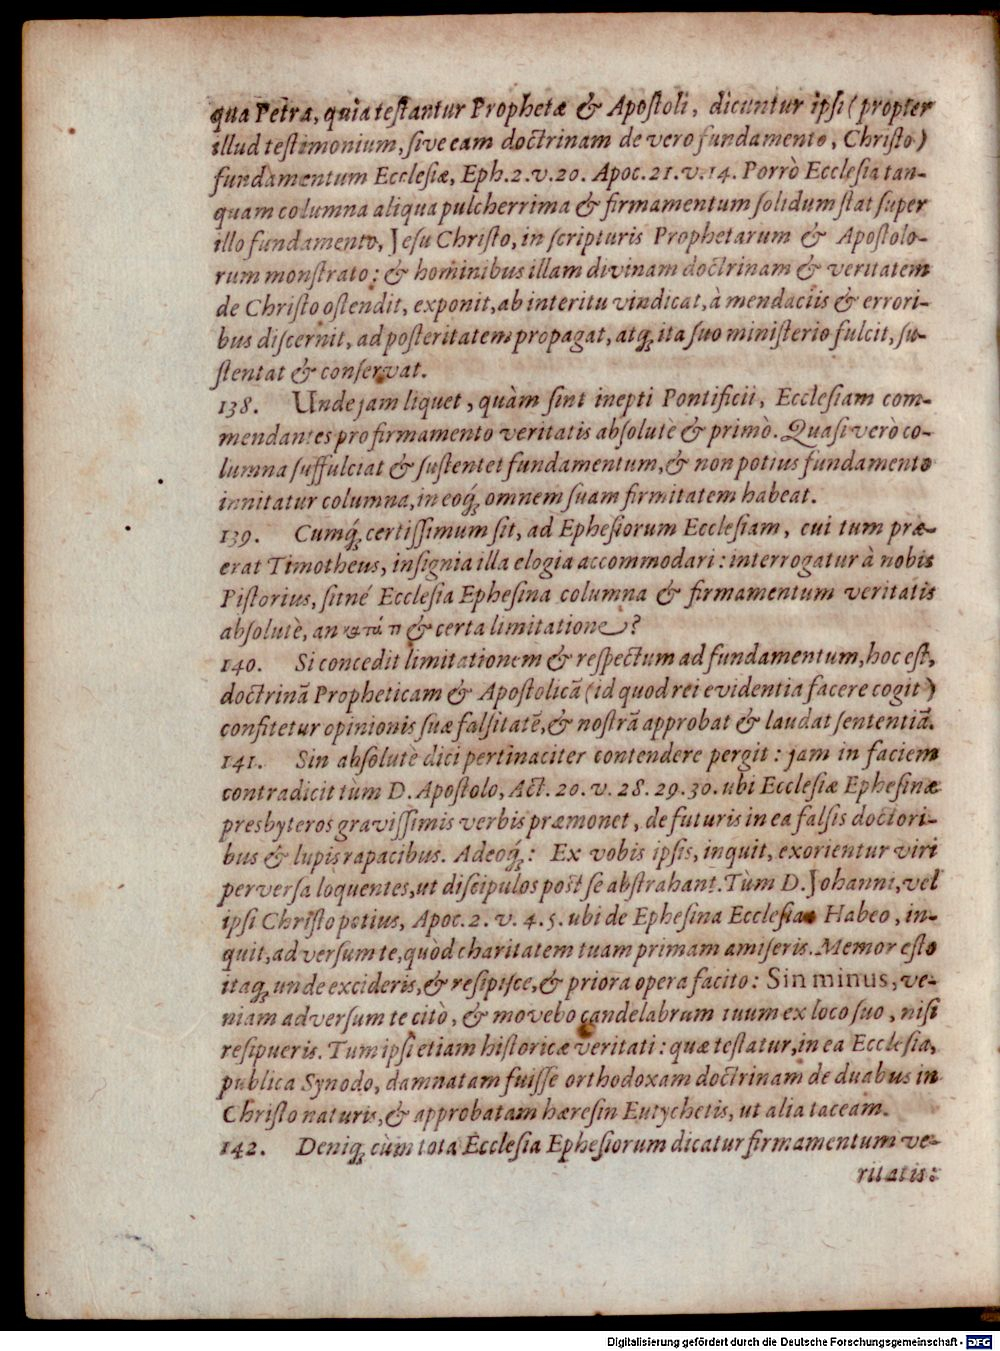 qua Petra, quia testantur Prophetæ & Apostoli, dicuntur ipsi (propter
illud testimonium, sive eam doctrinam de vero fundamento, Christo)
fundamentum Ecclesiæ, Eph. 2. v. 20. Apoc. 21. v. 14. Porrò Ecclesia tan-
quam columna aliqua pulcherrima & firmamentum solidum stat super
illo fundamento, Jesu Christo, in scripturis Prophetarum & Apostolo-
rum monstrato: & hominibus illam divinam doctrinam & veritatem
de Christo ostendit, exponit, ab interitu vindicat, à mendaciis & errori-
bus discernit, ad posteritatem propagat, atq; ita suo ministerio fulcit, su-
stentat & conservat.
138. Unde jam liquet, quàm sint inepti Pontificii, Ecclesiam com-
mendantes pro firmamento veritatis absolutè & primò. Quasi verò co-
lumna suffulciat & sustentet fundamentum, & non potius fundamento
innitatur columna, in eoq́; omnem suam firmitatem habeat.
139. Cumq́; certissimum sit, ad Ephesiorum Ecclesiam, cui tum præ-
erat Timotheus, insignia illa elogia accommodari: interrogatur à nobis
Pistorius, sitné Ecclesia Ephesina columna & firmamentum veritatis
absolutè, an κατά τι & certa limitatione?
140. Si concedit limitationem & respectum ad fundamentum, hoc est,
doctrinã Propheticam & Apostolicã (id quod rei evidentia facere cogit)
confitetur opinionis suæ falsitatẽ, & nostrã approbat & laudat sententiã.
141. Sin absolutè dici pertinaciter contendere pergit: jam in faciem
contradicit tùm D. Apostolo, Act. 20. v. 28. 29. 30. ubi Ecclesiæ Ephesinæ
presbyteros gravissimis verbis præmonet, de futuris in ea falsis doctori-
bus & lupis rapacibus. Adeoq́;: Ex vobis ipsis, inquit, exorientur viri
perversa loquentes, ut discipulos post se abstrahant. Tùm D. Johanni, vel
ipsi Christo potius, Apoc. 2. v. 4. 5. ubi de Ephesina Ecclesia: Habeo, in-
quit, adversum te, quòd charitatem tuam primam amiseris. Memor esto
itaq; unde excideris, & resipisce, & priora opera facito: Sin minus, ve-
niam adversum te citò, & movebo candelabrum tuum ex loco suo, nisi
resipueris. Tum ipsi etiam historicæ veritati: quæ testatur, in ea Ecclesia,
publica Synodo, damnatam fuisse orthodoxam doctrinam de duabus in
Christo naturis, & approbatam hæresin Eutychetis, ut alia taceam.
142. Deniq; cùm tota Ecclesia Ephesiorum dicatur firmamentum ve-
ritatis:
Digitalisierung gefördert durch die Deutsche Forschungsgemeinschaft - DFG